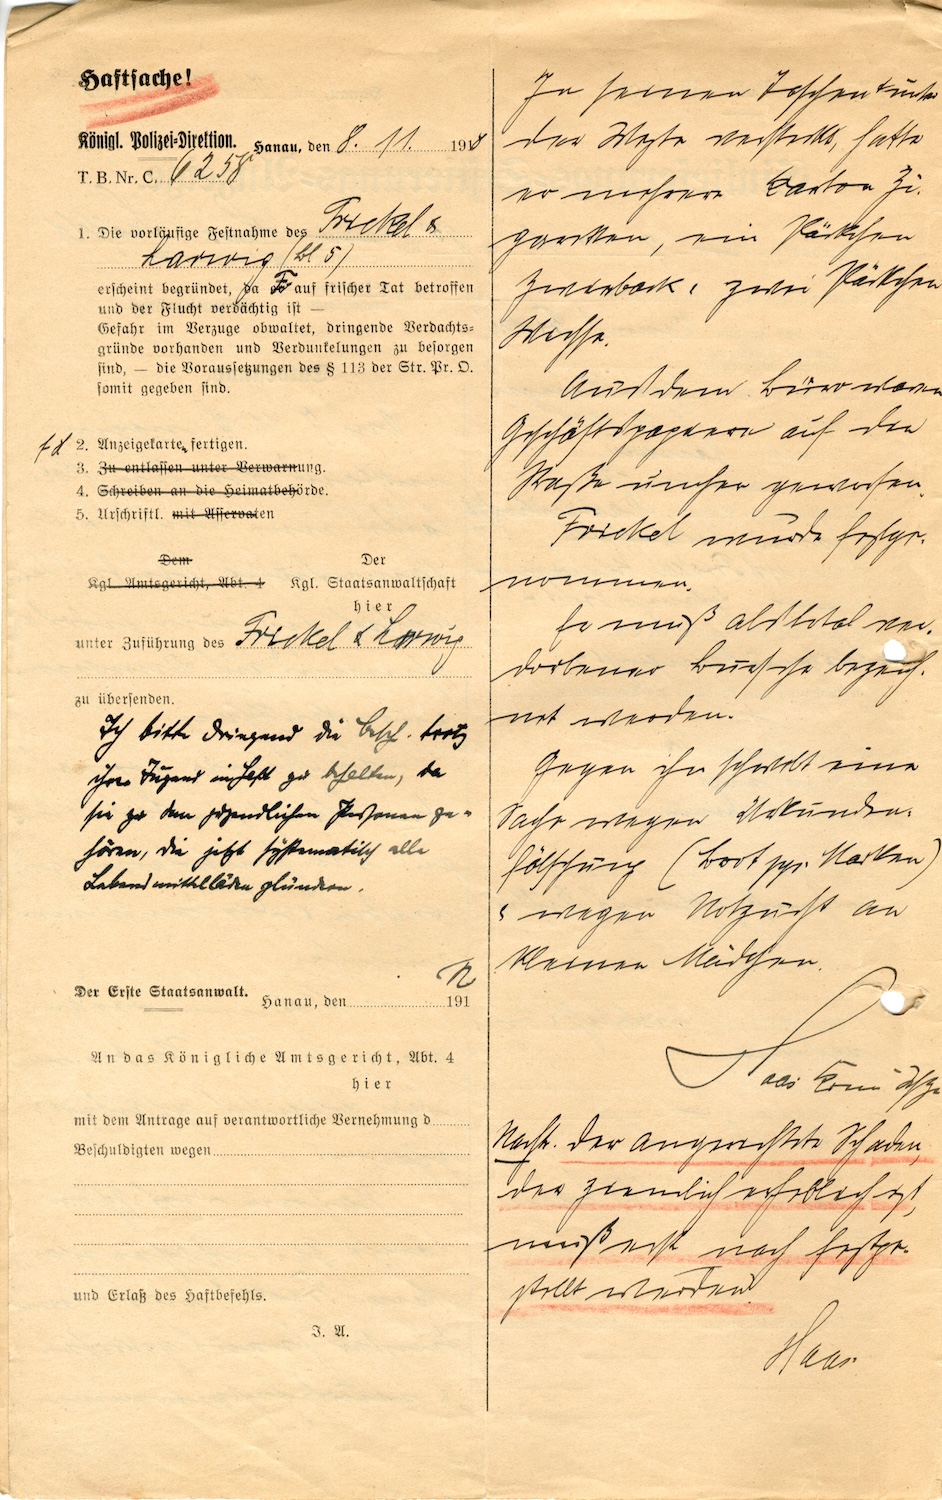 Haftsache!
Königl. Polizei-Direktion.
Hanau, den 8. 11. 1918
T. B. Nr. C. 6258
1. Die vorläufige Festnahme des Frickel &
Larwig (bl 5)
erscheint begründet, da F auf frischer Tat betroffen
und der Flucht verdächtig ist —
Gefahr im Verzuge obwaltet, dringende Verdachts-
gründe vorhanden und Verdunkelungen zu besorgen
sind, — die Voraussetzungen des § 113 der Str. Pr. O.
somit gegeben sind.
2. Anzeigekarte fertigen.
3. Zu entlassen unter Verwarnung.
4. Schreiben an die Heimatbehörde.
5. Urschriftl. mit Asservaten
Dem
Kgl. Amtsgericht, Abt. 4
Der
Kgl. Staatsanwaltschaft
hier
unter Zuführung des Frickel & Larwig
zu übersenden.
Ich bitte dringend die besch. trotz
ihrer Jugend in Haft zu behalten, da
sie zu den jugendlichen Personen ge-
hören, die jetzt systematisch alle
Lebensmittelläden plündern.
Der Erste Staatsanwalt.
Hanau, den 191
An das Königliche Amtsgericht, Abt. 4
hier
mit dem Antrage auf verantwortliche Vernehmung d
Beschuldigten wegen
und Erlaß des Haftbefehls.
J. A.
In seinen Taschen & unter
der Weste versteckt, hatte
er mehrere Karton Zi-
garetten, ein Päckchen
Zwieback & zwei Päckchen
Wichse.
Aus dem Büro waren
Geschäftspapiere auf der
Straße umher geworfen.
Frickel wurde festge-
nommen.
Er muß als total ver-
dorbener Bursche bezeich-
net werden.
Gegen ihn schwebt eine
Sache wegen Urkunden-
fälschung (Brot pp. Marken)
& wegen Notzucht an
kleinen Mädchen.
Haas
Nachtr. Der angerichtete Schaden,
der ziemlich erheblich ist,
muß erst noch festge-
stellt werden.
Haas